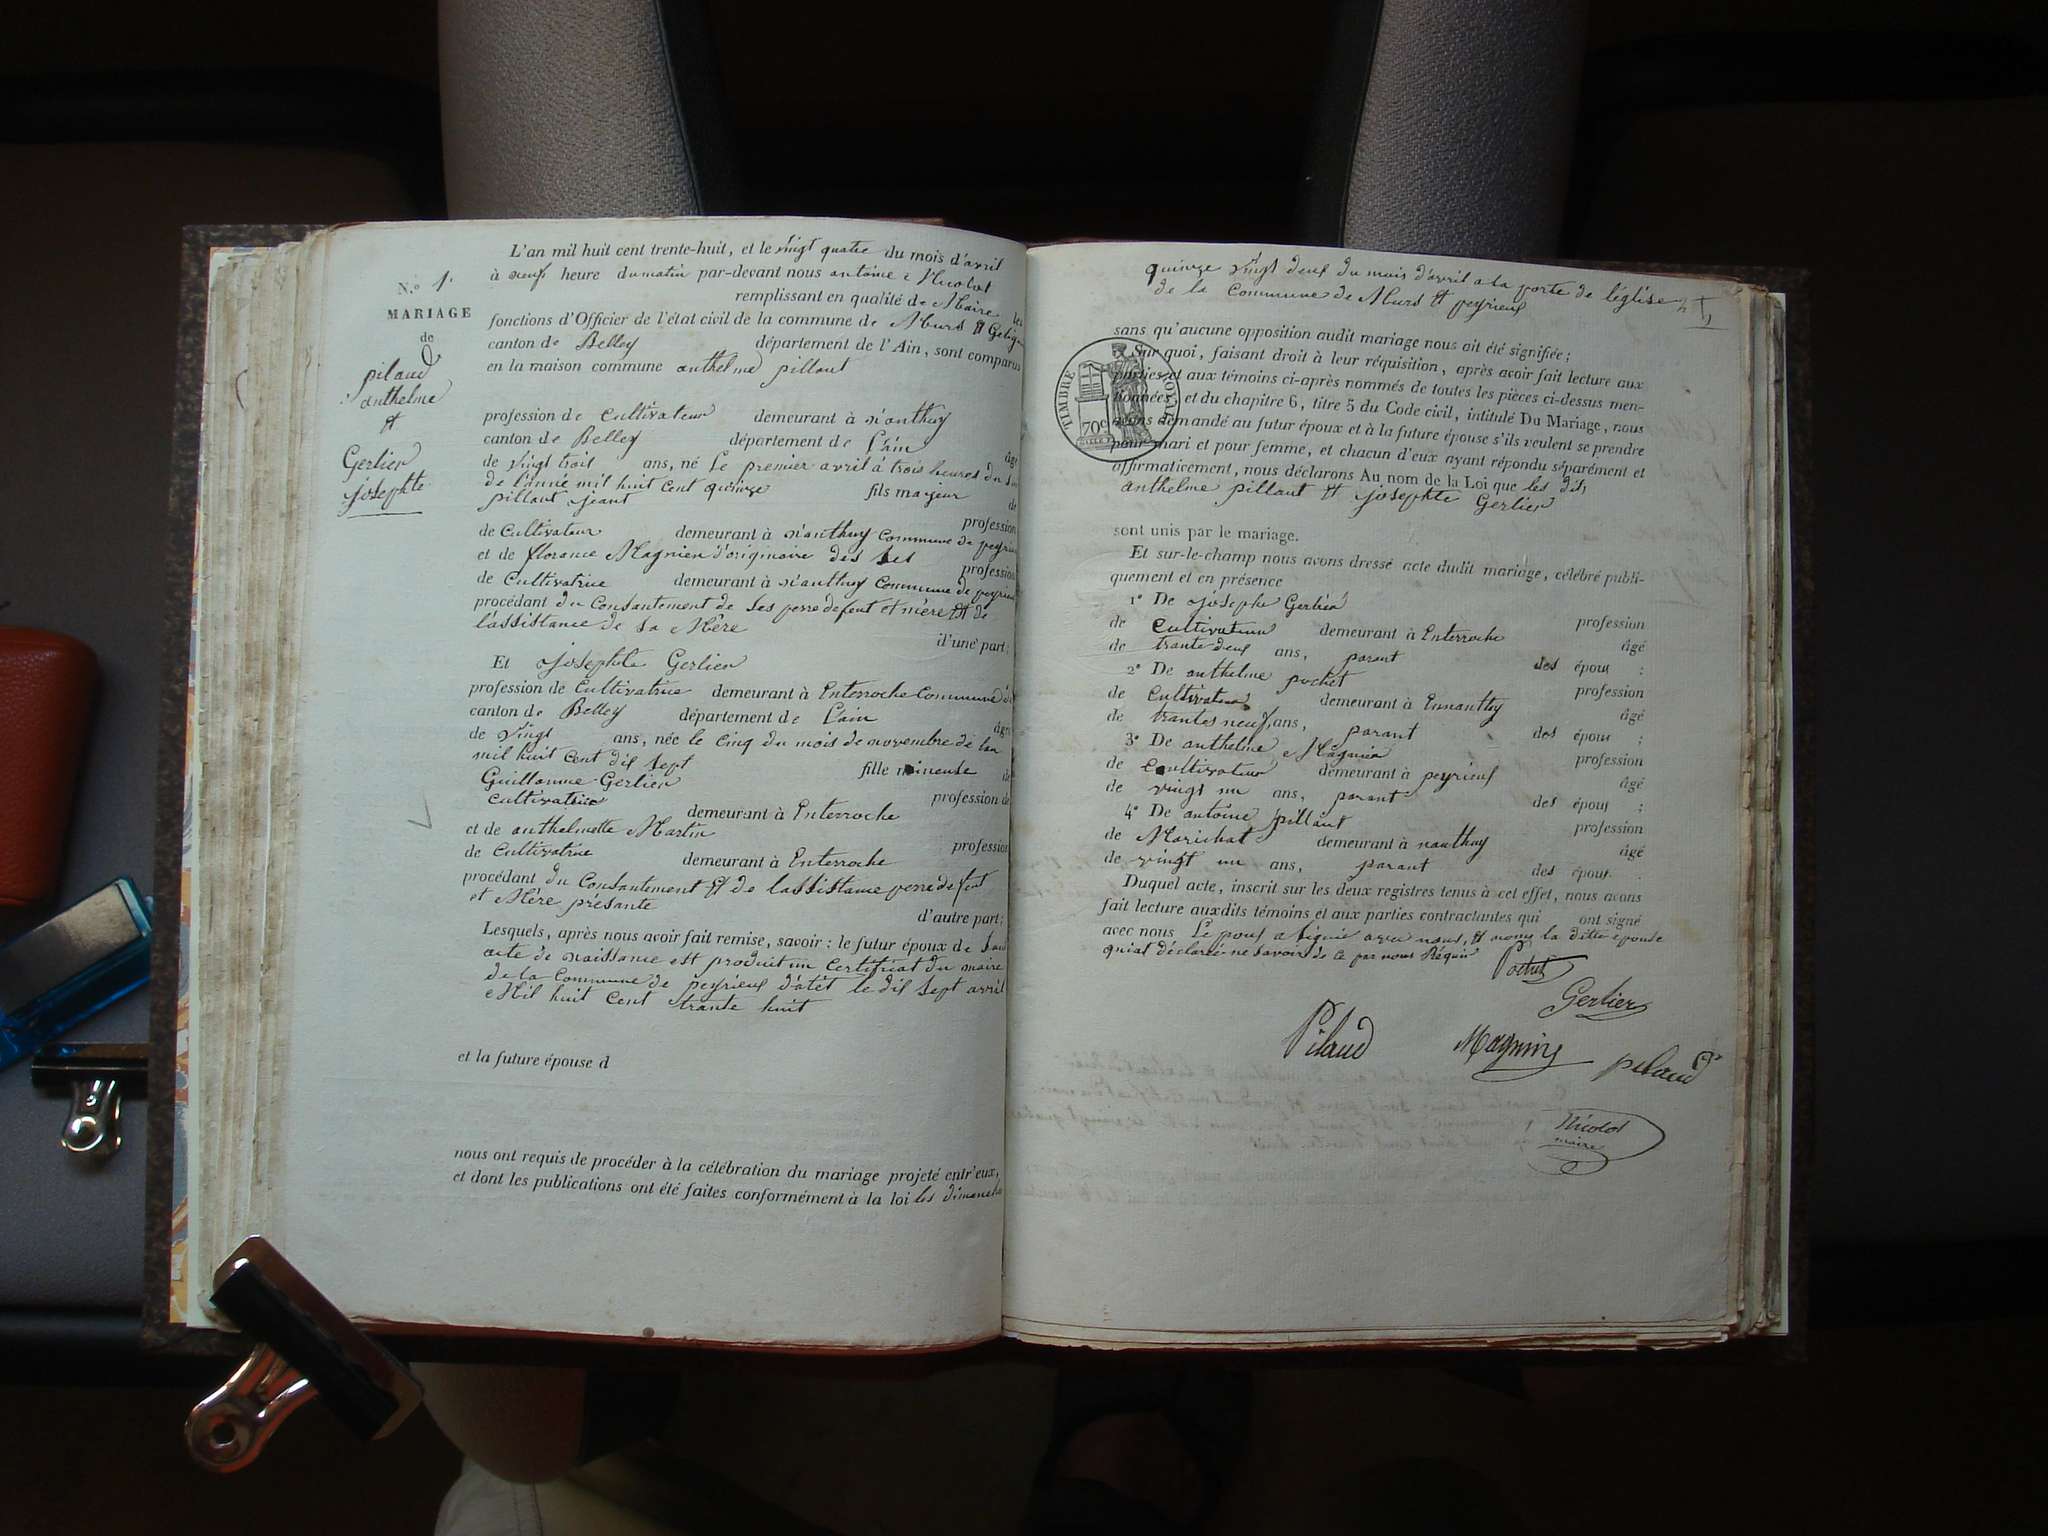 N.º 1.
MARIAGE
de
pilaud
anthelme
et
Gerlier
josephte
L'an mil huit cent trente-huit, et le vingt quatre du mois d'avril
à neuf heure du matin par-devant nous antoine Nicolot
remplissant en qualité de Maire les
fonctions d'Officier de l'état civil de la commune de Murs et Gelign
canton de Belley département de l'Ain, sont comparus
en la maison commune anthelme pillaut
profession de cultivateur demeurant à nanthuy
canton de Belley département de L'ain âgé
de vingt troit ans, né le premier avril à trois heures du soir
de l'anné mil huit cent quinze fils majeur de
pillaut jeant profession
de cultivateur demeurant à nanthuy commune de peyrieu
et de florance Magnien d'originaire des profession
de cultivatrice demeurant à nanthuy commune de peyrieu
procédant du consantement de ses perre defent et mère et de
lassistance de sa Mère
d'une part;
Et josephte Gerlier
profession de cultivatrice demeurant à Enterroche commune
canton de Belley département de L'ain âgée
de vingt ans, née le cinq du mois de novembre de lan
mil huit cent dix sept fille mineuse de
Guillaume Gerlier
cultivatrice profession de
demeurant à Enterroche
et de anthelmette Martin
de cultivatrice profession
demeurant à Enterroche
procédant du consantement et de lassistance perre defent
et Mère présante d'autre part;
Lesquels, après nous avoir fait remise, savoir: le futur époux de son
acte de naissance est produit un certificat du maire
de la commune de peyrieux datét le dix sept avril
Mil huit cent trante huit
et la future épouse d
nous ont requis de procéder à la célébration du mariage projeté entr'eux,
et dont les publications ont été faites conformément à la loi les dimanche
quinze vingt deux du mois d'avril a la porte de léglise
de la commune de Murs et peyrieux
TIMBRE ROYAL
70c
sans qu'aucune opposition audit mariage nous ait été signifiée;
Sur quoi, faisant droit à leur réquisition, après acoir fait lecture aux
parties et aux témoins ci-après nommés de toutes les pièces ci-dessus men-
tionnées, et du chapitre 6, titre 5 du Code civil, intitulé Du Mariage, nous
avons demandé au futur époux et à la future épouse s'ils veulent se prendre
pour mari et pour femme, et chacun d'eux ayant répondu séparément et
affirmaticement, nous déclarons Au nom de la Loi que les dits
anthelme pillaut et josephte Gerlier
sont unis par le mariage.
Et sur-le-champ nous avons dressé acte dudit mariage, célébré publi-
quement et en présence
1º De josephe Gerlier
de cultivateur demeurant à Enterroche profession
de trante deux ans, parant des épout : âgé
2º De anthelme pochet
de cultivateur demeurant à Ennanthuy profession
de trantes neuf ans, parant des épout ; âgé
3º De anthelme Magnin
de cultivateur demeurant à peyrieux profession
de vingt un ans, parant des épout ; âgé
4º De antoine pillaut
de Marichat demeurant à nanthuy profession
de vingt un ans, parant des épout. âgé
Duquel acte, inscrit sur les deux registres tenus à cet effet, nous avons
fait lecture auxdits témoins et aux parties contractantes qui ont signé
avec nous Le pout a signié avec nous, et nomt la ditte épouse
quiat déclaréé ne savoir de ce par nous Réquis
Pochet
Gerlier
Pilaud Magnin pilaud
Nicolot
maire